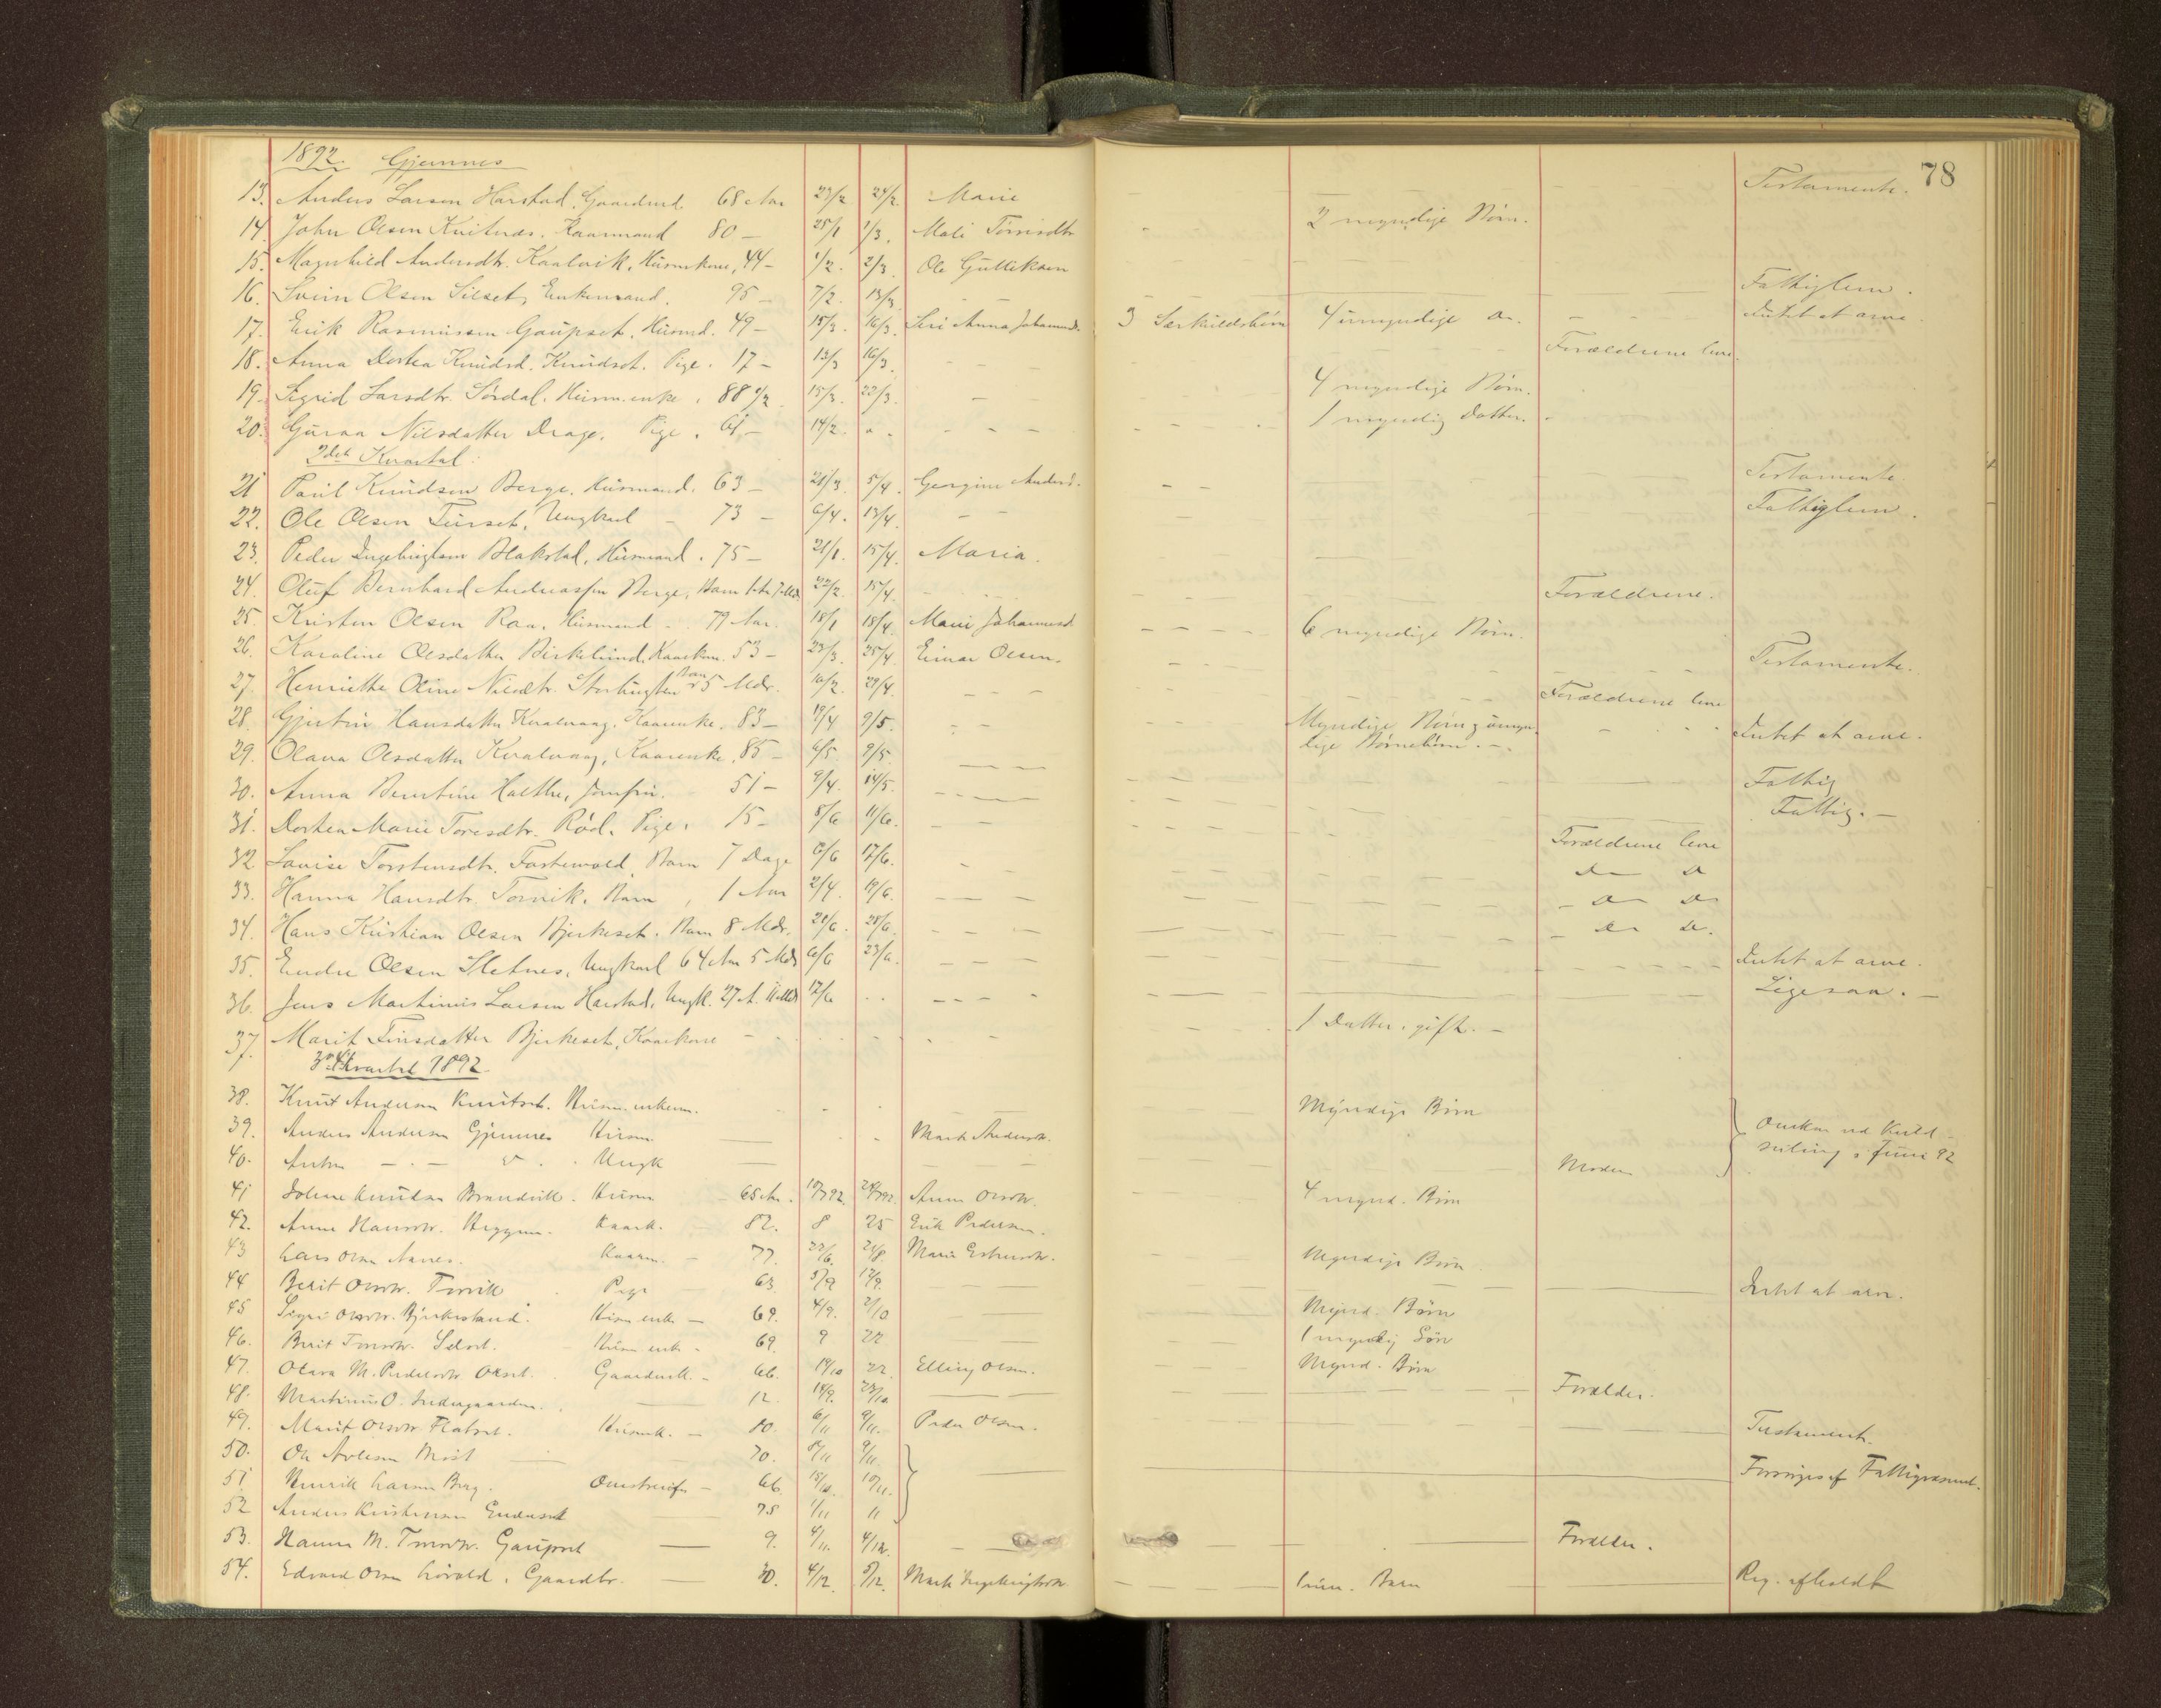 78
1892. Gjemnes
13. Anders Larsen Harstad, Gaardmd. 68 Aar 23/2 24/2. Marie Testamente.
14. John Olsen Knitnæs. Kaarmand 80 — 28/1 1/3. Mali Torrisdtr 2 myndige Børn.
15. Magnhild Andersdtr. Kaalvik, Husmkone, 44 — 1/2. 2/3. Ole Gulliksen
16. Svein Olsen Silset, Enkemand. 95 — 7/2. 13/3 Fattiglem.
17. Erik Rasmussen Gaupset, Husmd. 49 — 15/3. 16/3. Siri Anna Johannesd. 3 Særkuldsbørn 4 umyndige do. Intet at arve.
18. Anna Dortea Knudsd. Knudset. Pige. 17 — 13/3 16/3. Forældrene leve.
19. Sigrid Larsdtr. Sørdal. Husm.enke. 88 1/2 15/3. 22/3. 4 myndige Børn.
20. Guraa Nilsdatter Drage. Pige. 61 — 14/2. 1 myndig Datter.
2det Kvartal:
21 Poul Knudsen Berge. Husmand. 63 — 21/3. 5/4. Gergine Andersd. Testamente.
22. Ole Olsen Turset, Ungkarl — 73 — 6/4. 13/4. Fattiglem.
23. Peder Ingebrigtsen Blakstad, Husmand. 75 — 21/1. 15/4. Maria.
24. Oluf Bernhard Andreassen Berge, Barn 1 Aar 7 Mdr 22/2. 15/4. Forældrene.
25. Kristen Olsen Raa. Husmand. 79 Aar. 18/1 18/4. Marie Johannesd. 6 myndige Børn.
26. Karoline Olsdatter Birkelund. Kaarkone. 53 — 23/3. 25/4. Einar Olsen. Testamente.
27. Henriette Oline Nilsdtr. Storlingsten Barn 5 Mdr. 10/2. 29/4. Forældrene leve
28. Gjertrú Hansdatter Kvalvaag. Kaarenke. 83 — 19/4 9/5. Myndige Børn og umyn-
dige Børnebørn. Intet at arve.
29. Olava Olsdatter Kvalvaag, Kaarenke, 85 — 6/5. 9/5.
30. Anna Berntine Holthe, Jomfru. 51 — 9/4. 14/5. Fattig
31. Dorthea Marie Toresdtr. Rød. Pige. 15 — 8/6 11/6. Fattig. —
32. Lovise Torstensdtr. Fostervold, Barn 7 Dage 6/6 17/6. Forældrene leve
33. Hanna Hansdtr. Torvik. Barn, 1 Aar 2/4. 19/6. do do
34. Hans Kristian Olsen Bjerkeset. Barn 8 Mdr. 20/6. 28/6. do do
35. Endre Olsen Sletnes, Ungkarl 64 Aar 5 Mdr 6/6 23/6. Intet at arve.
36. Jens Martinus Larsen Harstad, Ungk. 27 A. 11 Mdr 12/6 Ligesaa. —
37. Marit Finsdatter Bjerkeset, Kaarkone 1 Datter, gift. —
3die Kvartal 1892.
38. Knut Andersen Knutset. Husm. enkem. Myndige Børn
39. Anders Andersen Gjemnes Husm. Marit Andersdtr. Omkom ved Kuld-
seiling i Juni 92
40. Anton — . — do . Ungk — Moder
41 Johan Knutsen Husm 65 Aar. 10/7 92. Anne Olsdtr. 4 mynd. Børn
42. Anne Hansdtr. Kaark. 82. 8 25 Erik Pedersen.
43 Lars Olsen Kaarm. — 77. 22/6. 24/8. Marie Myndige Børn
44 Berit Olsdtr. Torvik Pige 63. 5/9 12/9. Intet at arve.
45 Sigri Olsdtr. Bjerkestrand. Husm enke — 69. 4/9. 2/10 Mynd. Børn
46. Berit Toresdtr. Silset. Husm enke — 69. 9 22 1 myndig Søn
47. Olava M. Pedersdtr Gaardmk. — 66. 14/10 22. Elling Olsen. Mynd. Børn
48. Martinus O. Indergaarden. 12. 18/9. 24/10 Forældre.
49. Marit Olsdtr Flatset. Husmk. — 80. 6/11 9/11. Peder Olsen. Testament.
50. Ole 70. 8/11 9/11
51 Henrik Larsen Berg. Omstreifer — 66. 15/10. 10/11. Forsørges af Fattigvæsenet.
52 Anders Kristensen Enderset 75 1/11 11
53. Hanna M. Toresdtr. Gaupset 9. 4/11. 4/12. Forældre.
54. Edvard Olsen . Gaardbr. 30. 4/12. 5/12. Marit Ingebrigtsdtr 1 um. Barn Reg. afholdt